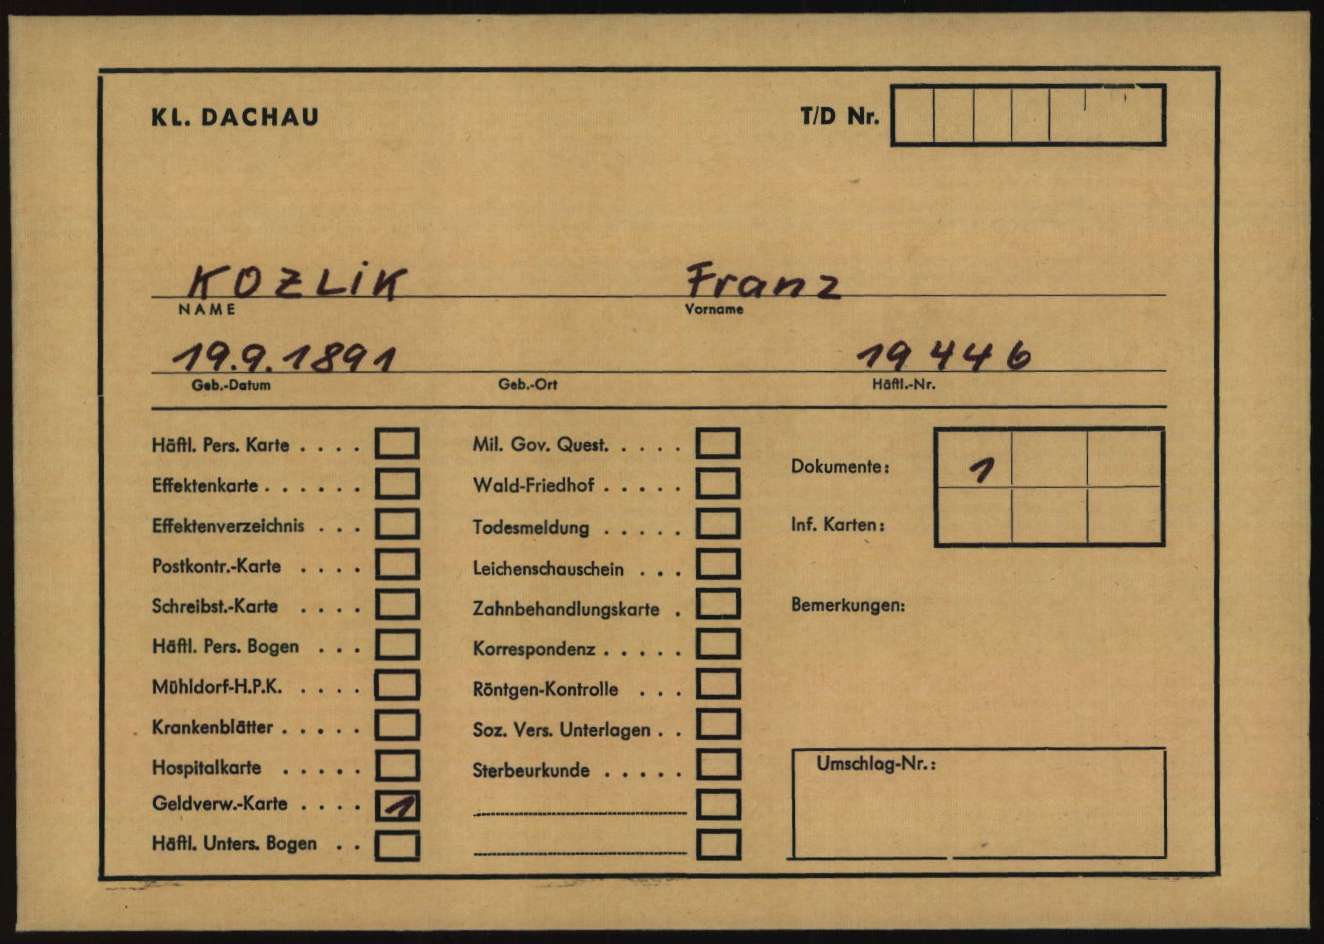 KL. DACHAU T/D Nr.
KOZLIK Franz
NAME Vorname
19.9.1891 19446
Geb.-Datum Geb.-Ort Häftl.-Nr.
Häftl. Pers. Karte . . . .
Effektenkarte . . . . . .
Effektenverzeichnis . . .
Postkontr.-Karte . . . .
Schreibst.-Karte . . . .
Häftl. Pers. Bogen . . .
Mühldorf-H.P.K. . . . .
Krankenblätter . . . . .
Hospitalkarte . . . . .
Geldverw.-Karte . . . . 1
Häftl. Unters. Bogen . .
Mil. Gov. Quest. . . . .
Wald-Friedhof . . . . .
Todesmeldung . . . . .
Leichenschauschein . . .
Zahnbehandlungskarte .
Korrespondenz . . . . .
Röntgen-Kontrolle . . .
Soz. Vers. Unterlagen . .
Sterbeurkunde . . . . .
Dokumente: 1
Inf. Karten:
Bemerkungen:
Umschlag-Nr.: